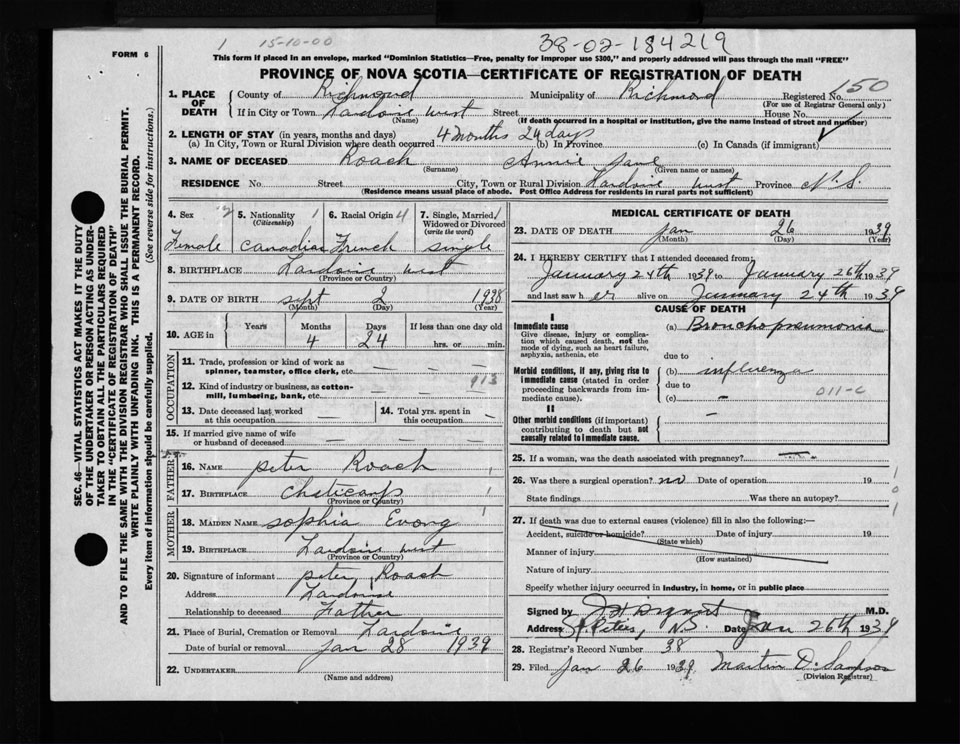 FORM 6
1 15-10-00
38-02-184219
This form if placed in an envelope, marked "Dominion Statistics—Free, penalty for improper use $300," and properly addressed will pass through the mail "FREE"
PROVINCE OF NOVA SCOTIA—CERTIFICATE OF REGISTRATION OF DEATH
SEC. 46—VITAL STATISTICS ACT MAKES IT THE DUTY
OF THE UNDERTAKER OR PERSON ACTING AS UNDER-
TAKER TO OBTAIN ALL THE PARTICULARS REQUIRED
IN THE "CERTIFICATE OF REGISTRATION OF DEATH"
AND TO FILE THE SAME WITH THE DIVISION REGISTRAR WHO SHALL ISSUE THE BURIAL PERMIT.
WRITE PLAINLY WITH UNFADING INK. THIS IS A PERMANENT RECORD.
Every item of information should be carefully supplied. (See reverse side for instructions.)
1. PLACE OF DEATH
County of Richmond Municipality of Richmond Registered No. 150
(For use of Registrar General only)
If in City or Town west Street House No.
(Name) (If death occurred in a hospital or institution, give the name instead of street and number)
2. LENGTH OF STAY (in years, months and days) 4 months 24 days
(a) In City, Town or Rural Division where death occurred (b) In Province (c) In Canada (if immigrant)
3. NAME OF DECEASED Roach Annie Jane
(Surname) (Given name or names)
RESIDENCE No. Street City, Town or Rural Division west Province N.S.
(Residence means usual place of abode. Post Office Address for residents in rural parts not sufficient)
4. Sex 2 Female
5. Nationality 1 (Citizenship) Canadian
6. Racial Origin 4 French
7. Single, Married, 1 Widowed or Divorced (write the word) single
8. BIRTHPLACE west
(Province or Country)
9. DATE OF BIRTH sept 2 1938
(Month) (Day) (Year)
10. AGE in Years Months Days If less than one day old
4 24 hrs. or min.
OCCUPATION
11. Trade, profession or kind of work as
spinner, teamster, office clerk, etc. — — —
12. Kind of industry or business, as cotton- 913
mill, lumbering, bank, etc. — — —
13. Date deceased last worked at this occupation —
14. Total yrs. spent in this occupation —
15. If married give name of wife
or husband of deceased — — — —
FATHER
16. NAME peter Roach 1
17. BIRTHPLACE 1
(Province or Country)
MOTHER
18. MAIDEN NAME sophia 1
19. BIRTHPLACE west
(Province or Country)
20. Signature of informant peter Roach
Address
Relationship to deceased Father
21. Place of Burial, Cremation or Removal
Date of burial or removal Jan 28 1939
22. UNDERTAKER
(Name and address)
MEDICAL CERTIFICATE OF DEATH
23. DATE OF DEATH Jan 26 1939
(Month) (Day) (Year)
24. I HEREBY CERTIFY that I attended deceased from
January 24th 1939 to January 26th 1939
and last saw her alive on January 24th 1939
CAUSE OF DEATH
I
Immediate cause (a) Bronchopneumonia
Give disease, injury or complica-
tion which caused death, not the
mode of dying, such as heart failure,
asphyxia, asthenia, etc due to
Morbid conditions, if any, giving rise to (b) influenza
immediate cause (stated in order due to
proceeding backwards from im- (c) — 011-c
mediate cause).
II
Other morbid conditions (if important) —
contributing to death but not
causally related to immediate cause.
25. If a woman, was the death associated with pregnancy? —
26. Was there a surgical operation? no Date of operation 19 1
State findings Was there an autopsy? 0
27. If death was due to external causes (violence) fill in also the following:— 1
Accident, suicide or homicide? Date of injury 19
(State which)
Manner of injury
(How sustained)
Nature of injury
Specify whether injury occurred in industry, in home, or in public place
Signed by M.D.
Address St. Peters, N.S. Date Jan 26th 1939
28. Registrar's Record Number 38
29. Filed Jan 26 1939 Martin D. Sampson
(Division Registrar)